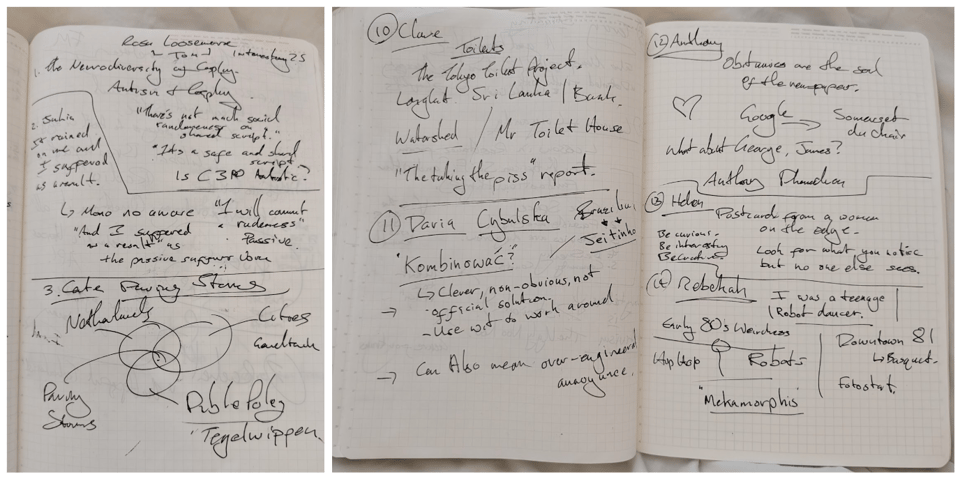 Rosa Loosemore
Tom
Interesting 25
1. The Neurodiversity of Cosplay.
Autism & Cosplay
"There's not much social
randomness or
shared script."
"Its a safe and shared
script
Is C3PO Autistic?
2. Suhin
It rained
on me and
I suffered
as a result.
↳ Mono no aware
"I will commit
a rudeness"
"And I suffered
as a result" as
Passive.
the passive suffers when
3. Cate Paving Stones
Netherlands
Cities
Paving
Stones
Public Policy
"Tegelwippen.
10 Clare
Toilets
The Tokyo Toilet Project.
Longlist Sri Lanka / Bank.
Watershed / Mr Toilet House
"The taking the piss" report.
11 Daria Cybulska
Brazilian
Jeitinho
"Kombinować?
↳ Clever, non-obvious, not
→ official solution.
- Use wit to work around
→ Can Also mean over-engineered
annoyance.
12 Anthony
Obituaries are the soul
of the newspaper.
♡ Google → Somerset
du chair
What about George, James?
Anthony
13 Helen
Postcard from a women
on the edge.
Be curious.
Be interesting
Look for what you notice
but no one else sees.
14 Rebekah
I was a teenage
Robot dancer.
Early 80's Weirdness
Hip Hop
Robots
Downtown 81
↳ Basquiat.
"Mekamorphis"